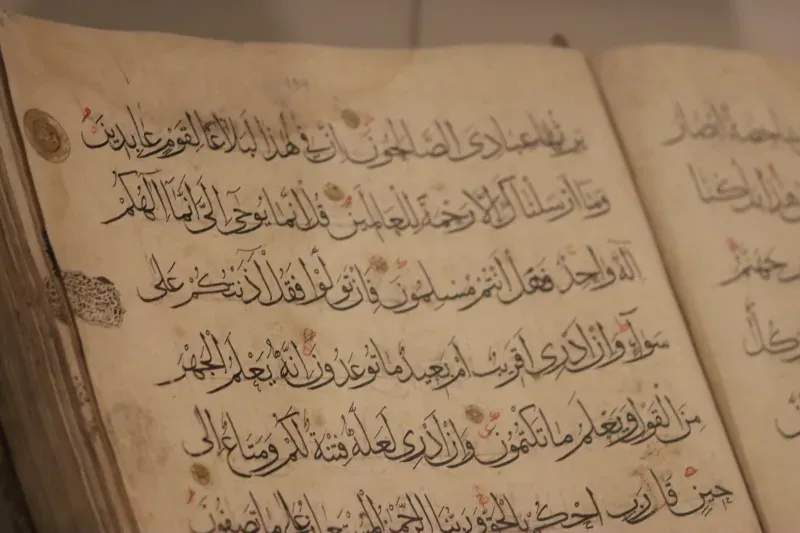 شاخصة أبصار
من هذا بل كنا
جهنم
وكل
يرثها عبادي الصالحون إن في هذا لبلاغا لقوم عابدين
وما أرسلناك إلا رحمة للعالمين قل إنما يوحى إلي أنما إلهكم
إله واحد فهل أنتم مسلمون فإن تولوا فقل آذنتكم على
سواء وإن أدري أقريب أم بعيد ما توعدون إنه يعلم الجهر
من القول ويعلم ما تكتمون وإن أدري لعله فتنة لكم ومتاع إلى
حين قال رب احكم بالحق وربنا الرحمن المستعان على ما تصفون